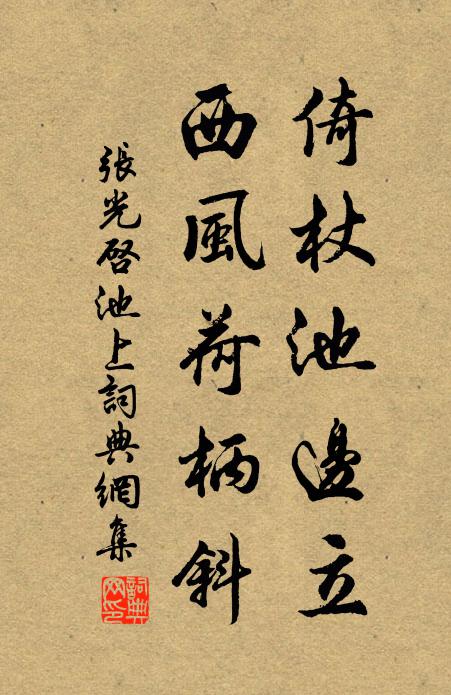 倚杖池邊立
西風荷柄斜
張光啓池上詞典網集
詞典網印